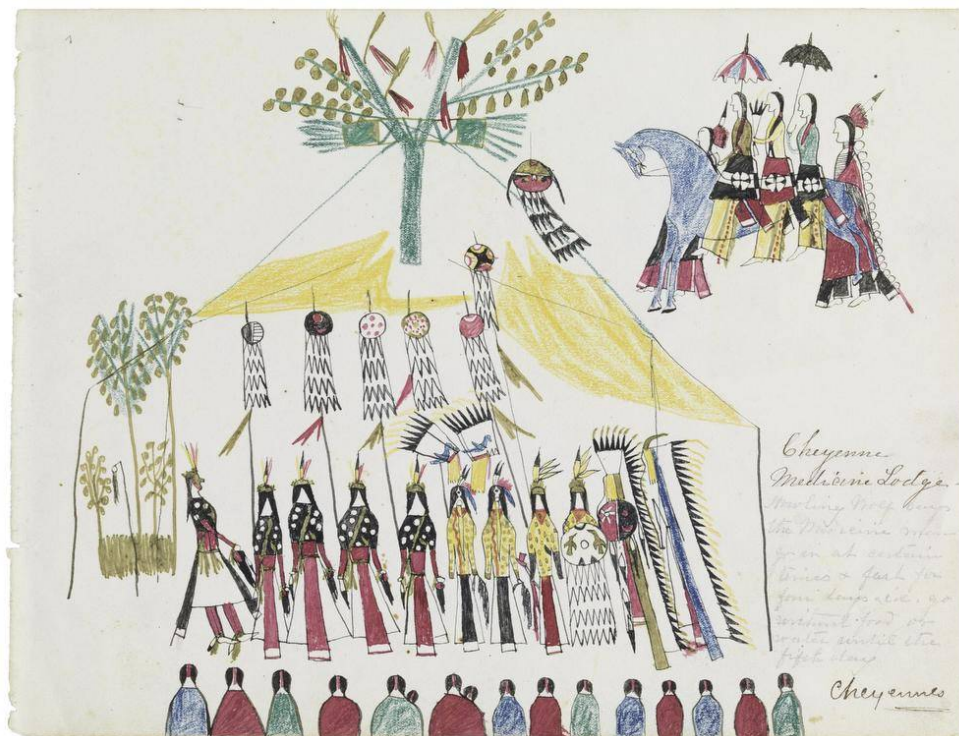 Cheyenne
Medicine Lodge -
Howling Wolf says
the Medicine men
go in at certain
times & fast for
four days i.e. go
without food or
water until the
fifth day
Cheyennes